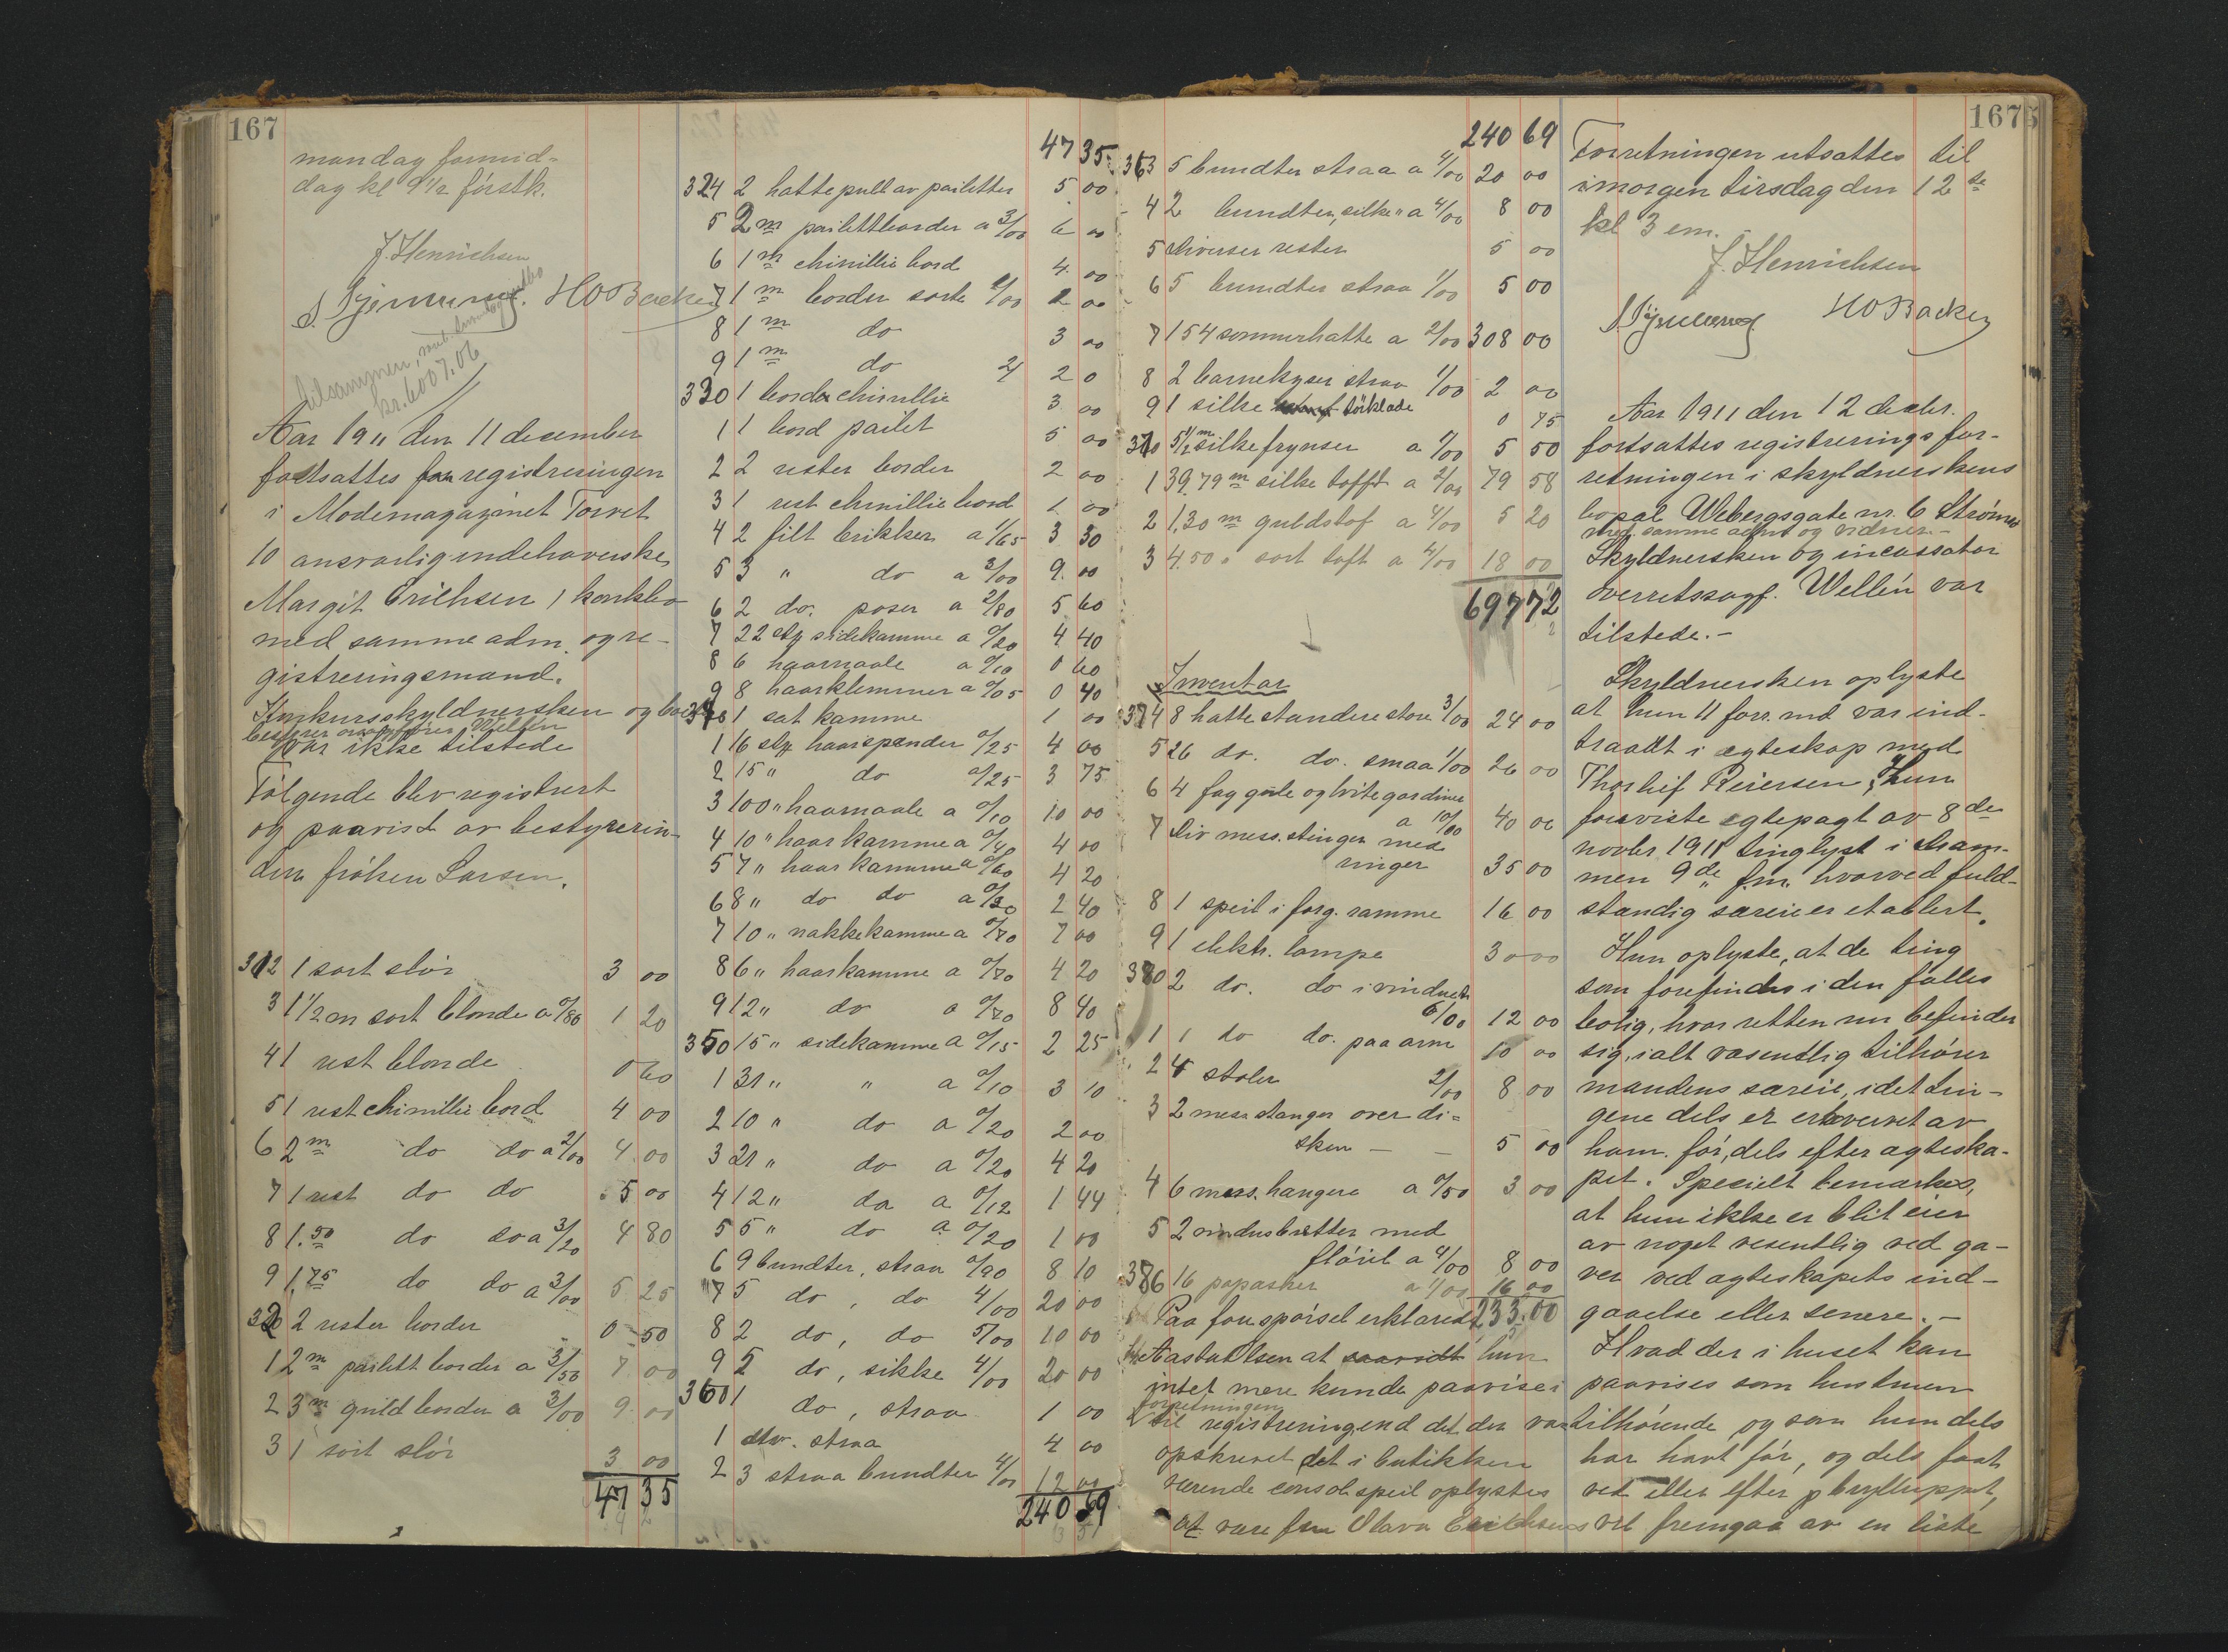 167
mandag formid-
dag kl 9 1/2 förstk.
J. Henrichsen
HOBacker
tilsammen,
kr. 6007.06
Aar 1911 den 11 december
fortsattes registreringen
i Modemagazinet Torvet
10 ansvarlig indehaverske
Margit Erichsen's konkbo
med samme adm. og re-
gistreringsmand.
Konkursskyldnersken og bo
Wellén
var ikke tilstede
Følgende blev registrert
og paavist av bestyrerin-
den fröken Larsen.
312 1 sort slör 3 00
3 1 1/2 m sort blonde a 0/80 1 20
4 1 rest blonde 0 60
5 1 rest chinillie bord 4 00
6 2 m do do a 2/00 4 00
7 1 rest do do 5 00
8 1.50 do do a 3/20 4 80
9 1.75 do do a 3/00 5 25
320 2 rester border 0 50
1 2 m pailett border a 3/50 7 00
2 3 m guld border a 3/00 9 00
3 1 sort slör 3 00
47 35
47 35
324 2 hattepull av pailetter 5 00
5 2 m pailettborder a 3/00 6 00
6 1 m chinillie bord 4 00
7 1 m border sorte 2/00 2 00
8 1 m do 3 00
9 1 m do 2/ 2 0
330 1 border chinillie 3 00
1 1 bord pailet 5 00
2 2 rester border 2 00
3 1 rest chinillie bord 1 00
4 2 filt brikker a 1/65 3 30
5 3 " do a 3/00 9 00
6 2 do. poser a 2/80 5 60
7 22 stk sidekamme a 0/20 4 40
8 6 haarnaale a 0/10 0 60
9 8 haarklemmer a 0/05 0 40
340 1 sat kamme 1 00
1 16 stk haarspænder 0/25 4 00
2 15 " do 0/25 3 75
3 100 " haarnaale a 0/10 10 00
4 10 " haarkamme a 0/40 4 00
5 7 " haarkamme a 0/60 4 20
6 8 " do do a 0/30 2 40
7 10 " nakkekamme a 0/70 7 00
8 6 " haarkamme a 0/70 4 20
9 12 " do a 0/70 8 40
350 15 " sidekamme a 0/15 2 25
1 31 " " a 0/10 3 10
2 10 " do a 0/20 2 00
3 21 " do a 0/20 4 20
4 12 " do a 0/12 1 44
5 5 " do a 0/20 1 00
6 9 bundter, straa 0/90 8 10
7 5 do, do 4/00 20 00
8 2 do, do 5/00 10 00
9 5 do, silke 4/00 20 00
360 1 do, straa 1 00
1 div. straa 4 00
2 3 straa bundter 4/00 12 00
240 69
240 69
363 5 bundter straa a 4/00 20 00
4 2 bundter, silke " a 4/00 8 00
5 diverser rester 5 00
6 5 bundter straa 1/00 5 00
7 154 sommerhatte a 2/00 308 00
8 2 barnekyser straa 1/00 2 00
9 1 silke törklæde 0 75
370 5 1/2 m silkefrynser a 1/00 5 50
1 39.79 m silke tafft a 2/00 79 58
2 1.30 m guldstof a 4/00 5 20
3 4.50 " sort taft a 4/00 18 00
697 72
Inventar
374 8 hatte standere store 3/00 24 00
5 26 do. do. smaa 1/00 26 00
6 4 fag gule og hvite gardiner
a 10/00 40 00
7 Div mess. stinger med
ringer 35 00
8 1 speil i forg. ramme 16 00
9 1 elektr. lampe 30 00
380 2 do. do i vinduet
6/00 12 00
1 1 do do. paa arm 10 00
2 4 stoler 2/00 8 00
3 2 mess stanger over di-
sken - - 5 00
4 6 mess. hangere a 0/50 3 00
5 2 vindusbrætter med
flöiel a 4/00 8 00
386 16 papæsker a 1/00 16 00
233.00
Paa forespörsel erklæredes
at hun
intet mere kunde paavise i
forretningen
til registrering end det der var
opskrevet det i butikken
værende consol speil oplystes
at være fru Olava Erichsens
1675
Forretningen utsattes til
imorgen tirsdag den 12te
kl 3 em.
J. Henrichsen
HOBacker
Aar 1911 den 12 decbr.
fortsattes registreringsfor-
retningen i skyldnerskens
bopæl Webergsgate nr. 6 Strömsö
med samme adm og vidner. -
Skyldnersken og incassator
overretssagf. Wellén var
tilstede. -
Skyldnersken oplyste
at hun 11 forr. md var ind-
traadt i egteskap med
Thorleif Reiersen. Hun
foreviste egtepagt av 8de
novbr 1911 tinglyst i Dram-
men 9de f.m. hvorved fuld-
stændig særeie er etablert.
Hun oplyste, at de ting
som forefindes i den fælles
bolig, hvor retten nu befinder
sig, ialt væsentlig tilhører
mandens særeie, idet tin-
gene dels er erhvervet av
ham för, dels efter ægteska-
pet. Specielt bemærkes,
at hun ikke er blit eier
av noget vesentlig ved ga-
ver ved ægteskapets ind-
gaaelse eller senere. -
Hvad der i huset kan
paavises som hustruen
tilhörende og som hun dels
har havt för, og dels faat
ved eller efter bryllupet,
vil fremgaa av en liste